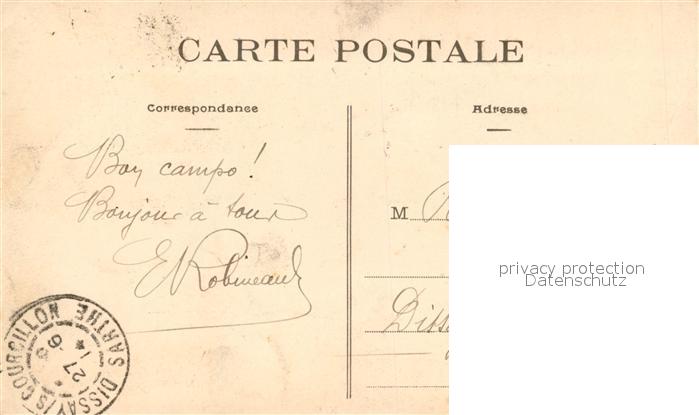 CARTE POSTALE
Correspondance
Adresse
Bon campo!
Bonjour à tous
E Robineau
M
Diss
privacy protection
Datenschutz
DISSAY/S COURCILLON
SARTHE
27